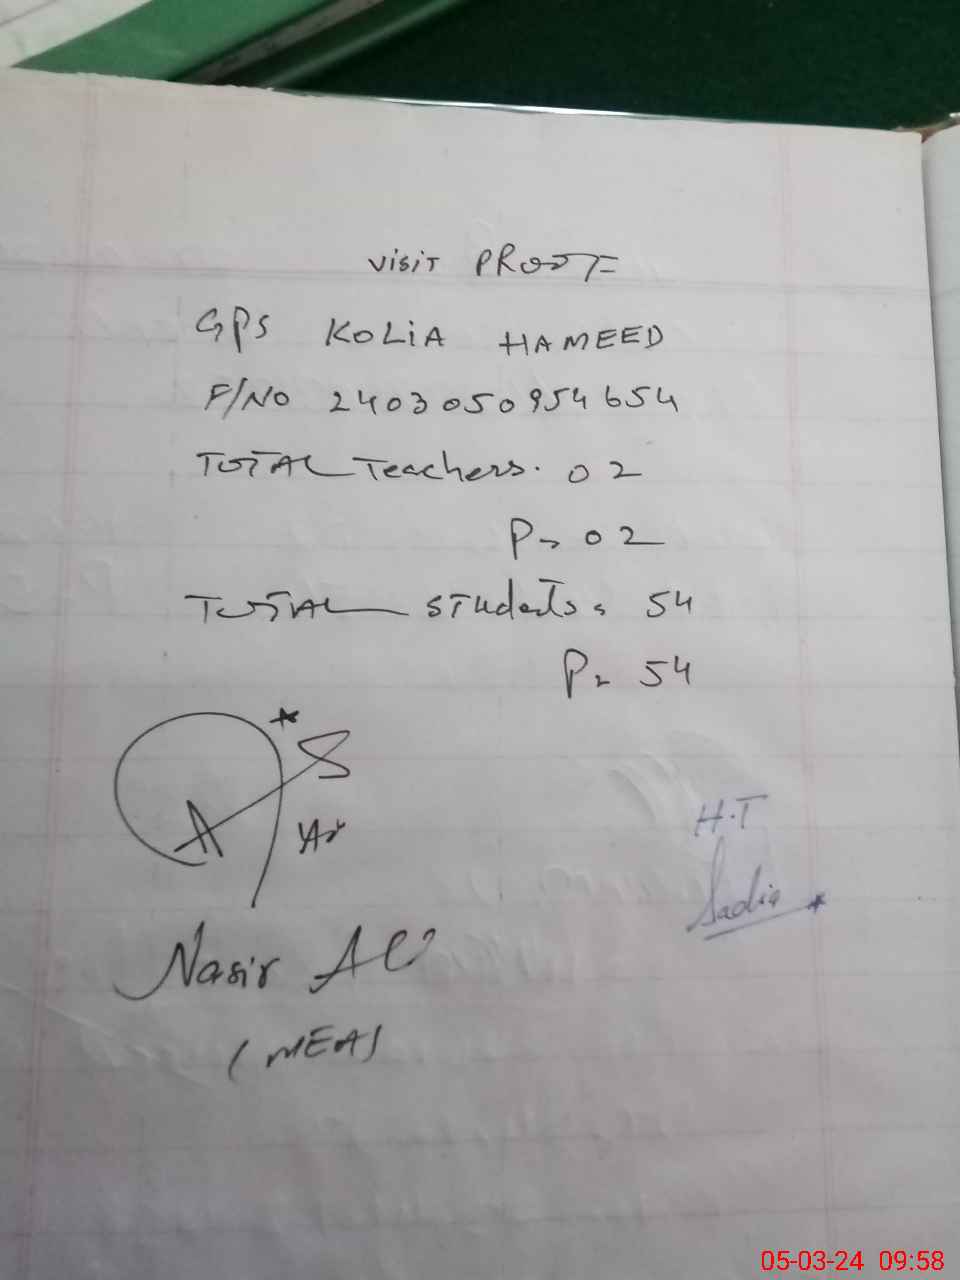 VISIT PROOF
GPS KOLIA HAMEED
F/NO 2403050954654
TOTAL Teachers. 02
P= 02
TOTAL Students = 54
P= 54
H.T
Sadia
Nasir Ali
(MEA)
05-03-24 09:58